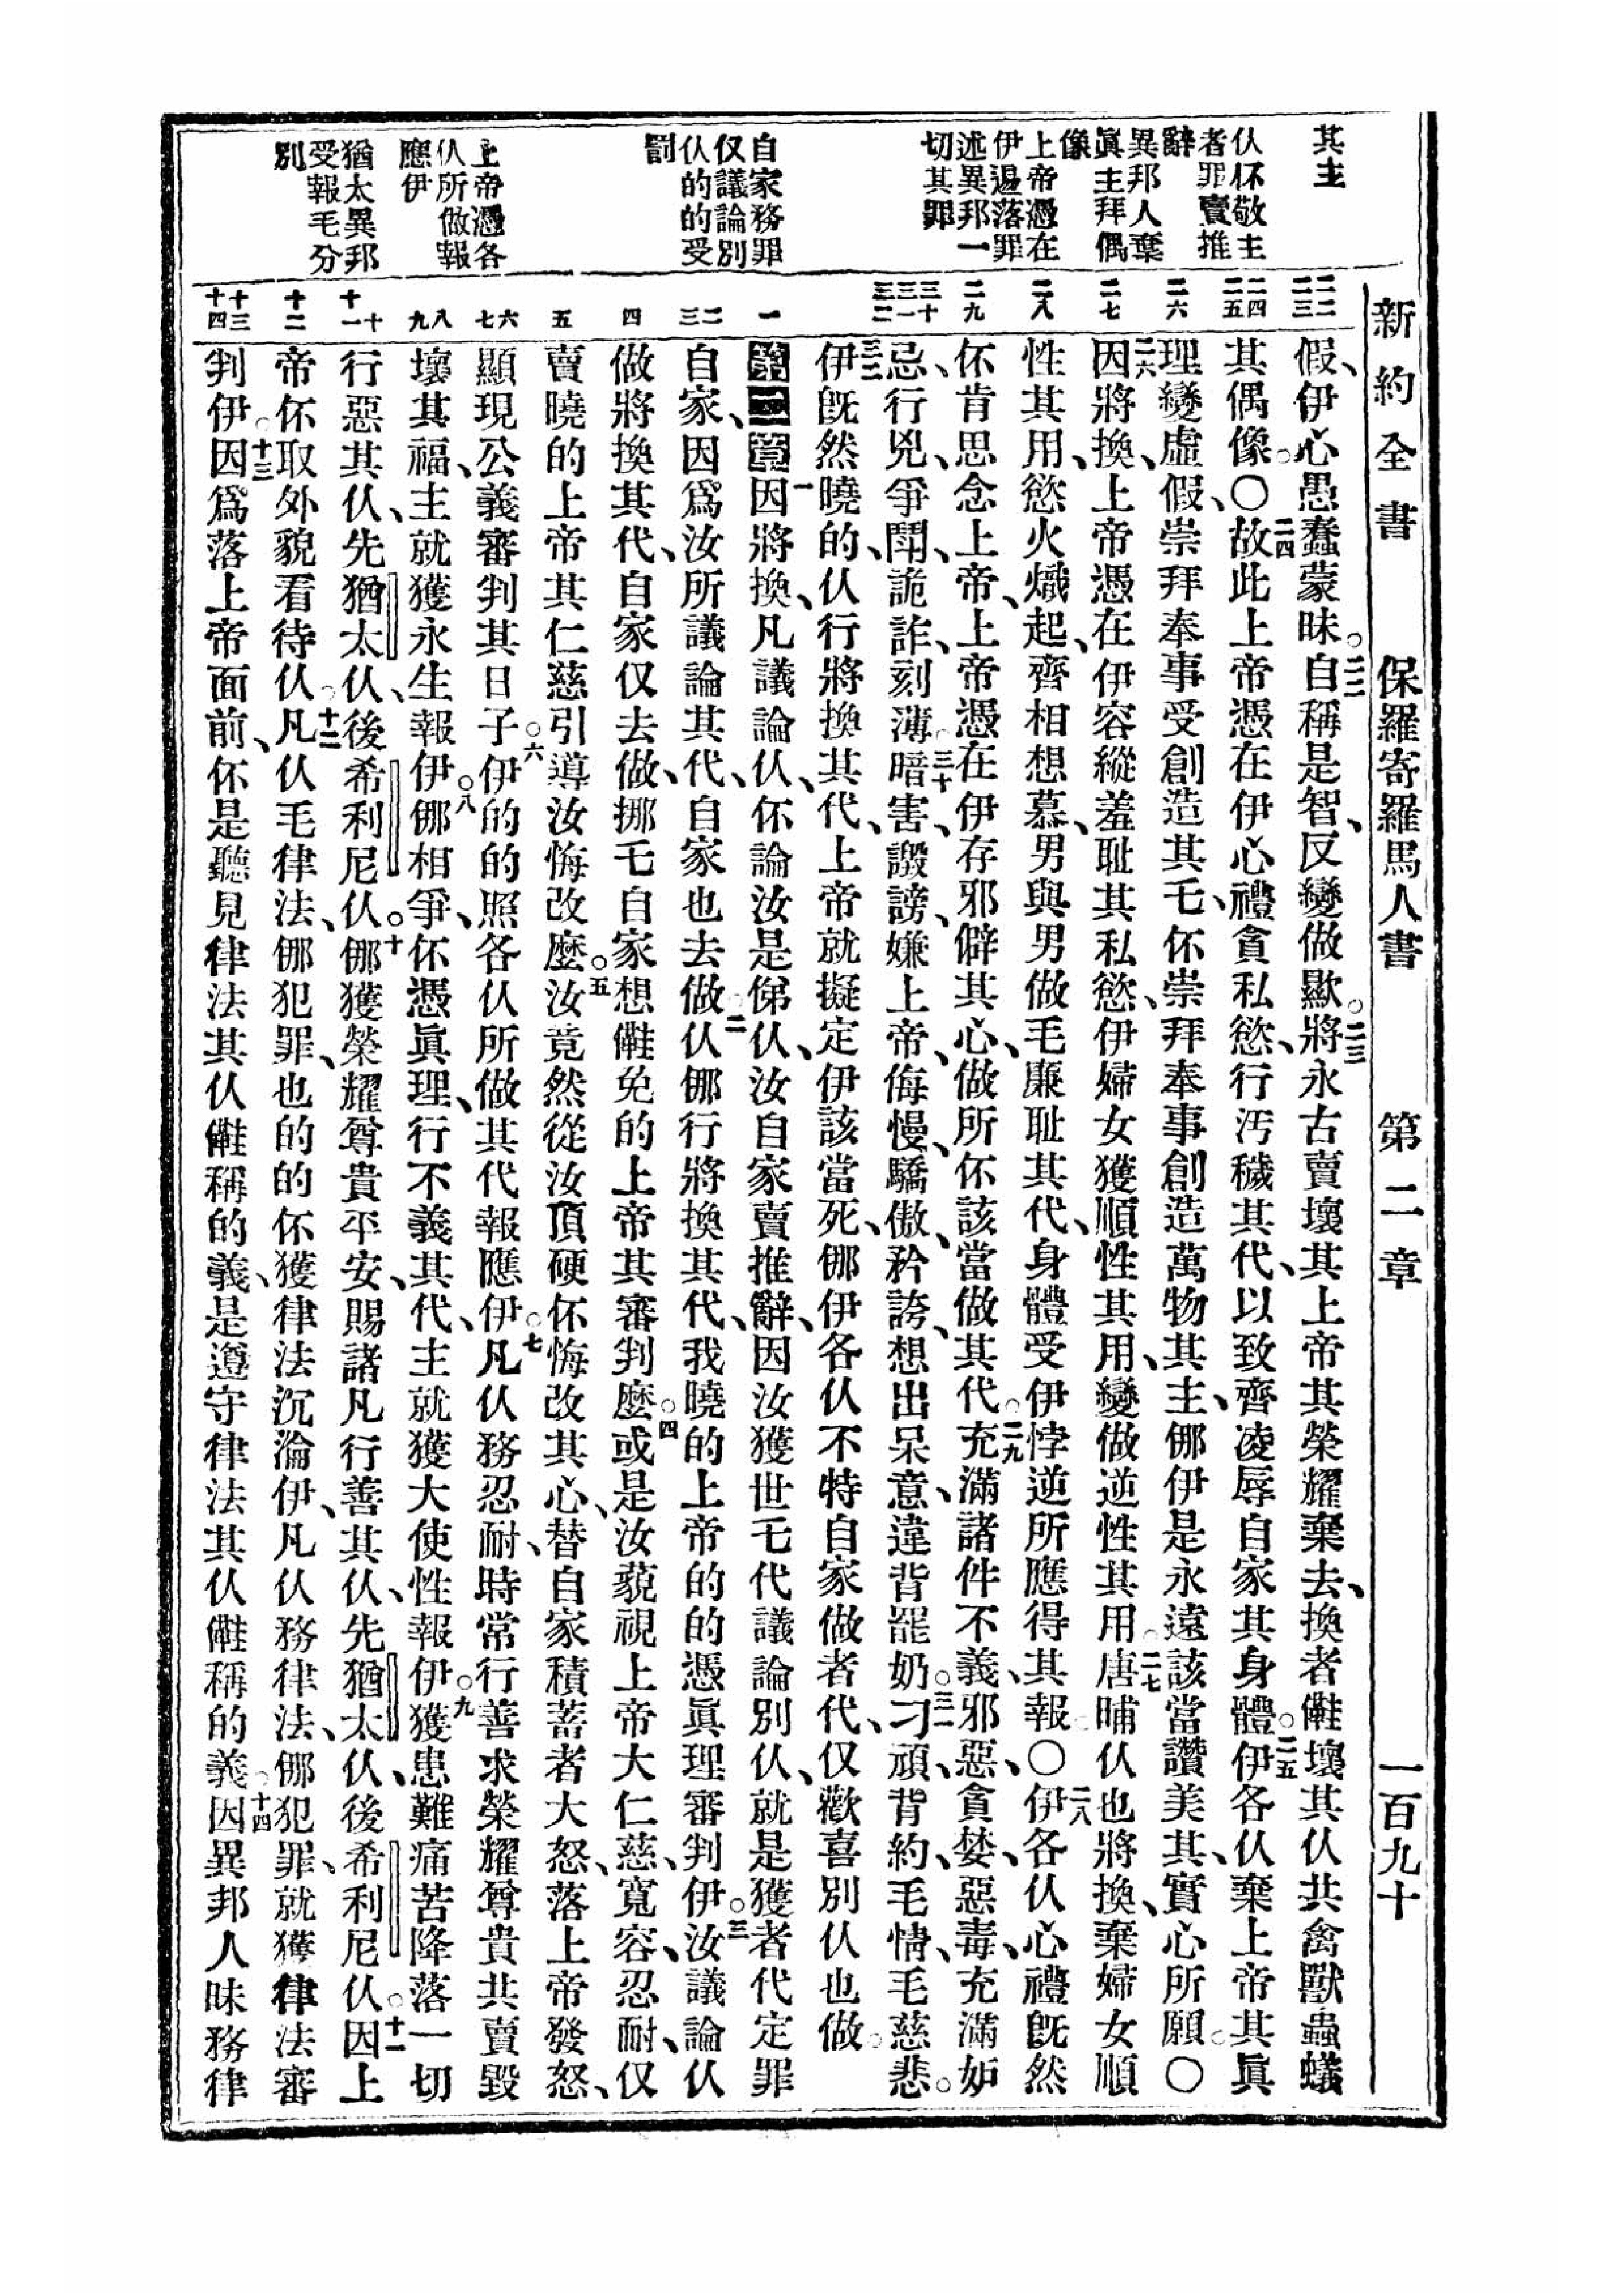 新約全書 保羅寄羅馬人書 第二章 一百九十
其主
仈怀敬主
者罪賣推
辭
異邦人棄
眞主拜偶
像
上帝憑在
伊邊落罪
述異邦一
切其罪
自家務罪
仅議論別
仈的的受
罰
上帝憑各
仈所做報
應伊
猶太異邦
受報毛分
別
二二 二三
二四 二五
二六
二七
二八
二九
三十 三一 三二
一
二 三
四
五
六 七
八 九
十 十一
十二
十三 十四
假、伊心愚蠢蒙昧。二二自稱是智、反變做歁。二三將永古賣壞其上帝其榮耀棄去、換者㒕壞其仈共禽獸蟲蟻
其偶像。〇二四故此上帝憑在伊心禮貪私慾、行汚穢其代、以致齊凌辱自家其身體。二五伊各仈棄上帝其眞
理變虛假、崇拜奉事受創造其乇、怀崇拜奉事創造萬物其主、㑚伊是永遠該當讚美其、實心所願。〇
二六因將換、上帝憑在伊容縱羞耻其私慾、伊婦女獲順性其用、變做逆性其用。二七唐晡仈也將換、棄婦女順
性其用、慾火熾起、齊相想慕、男與男做毛廉耻其代、身體受伊悖逆所應得其報。〇二八伊各仈心禮旣然
怀肯思念上帝、上帝憑在伊存邪僻其心、做所怀該當做其代。二九充滿諸件不義、邪惡、貪婪、惡毒、充滿妬
忌、行兇、爭鬪、詭詐、刻薄。三十暗害、譭謗、嫌上帝、侮慢、驕傲、矜誇、想出呆意、違背罷奶。三一刁頑、背約、毛情、毛慈悲。
三二伊旣然曉的、仈行將換其代、上帝就擬定伊該當死、㑚伊各仈不特自家做者代、仅歡喜別仈也做。
第二章一因將換、凡議論仈、怀論汝是俤仈、汝自家賣推辭、因汝獲世乇代議論別仈、就是獲者代定罪
自家、因爲汝所議論其代、自家也去做。二仈㑚行將換其代、我曉的上帝的的憑眞理審判伊。三汝議論仈
做將換其代、自家仅去做、挪乇自家想㒕免的上帝其審判麼。四或是汝藐視上帝大仁慈、寬容、忍耐、仅
賣曉的上帝其仁慈引導汝悔改麼。五汝竟然從汝頂硬怀悔改其心、替自家積蓄者大怒、落上帝發怒、
顯現公義審判其日子。六伊的的照各仈所做其代報應伊。七凡仈務忍耐、時常行善求榮耀尊貴共賣毀
壞其福、主就獲永生報伊。八㑚相爭、怀憑眞理、行不義其代、主就獲大使性報伊。九獲患難痛苦降落一切
行惡其仈、先猶太仈、後希利尼仈。十㑚獲榮耀尊貴平安、賜諸凡行善其仈、先猶太仈、後希利尼仈。十一因上
帝怀取外貌看待仈。十二凡仈毛律法、㑚犯罪、也的的怀獲律法沉淪伊、凡仈務律法、㑚犯罪、就獲律法審
判伊。十三因爲落上帝面前、怀是聽見律法其仈㒕稱的義、是遵守律法其仈㒕稱的義。十四因異邦人昧務律